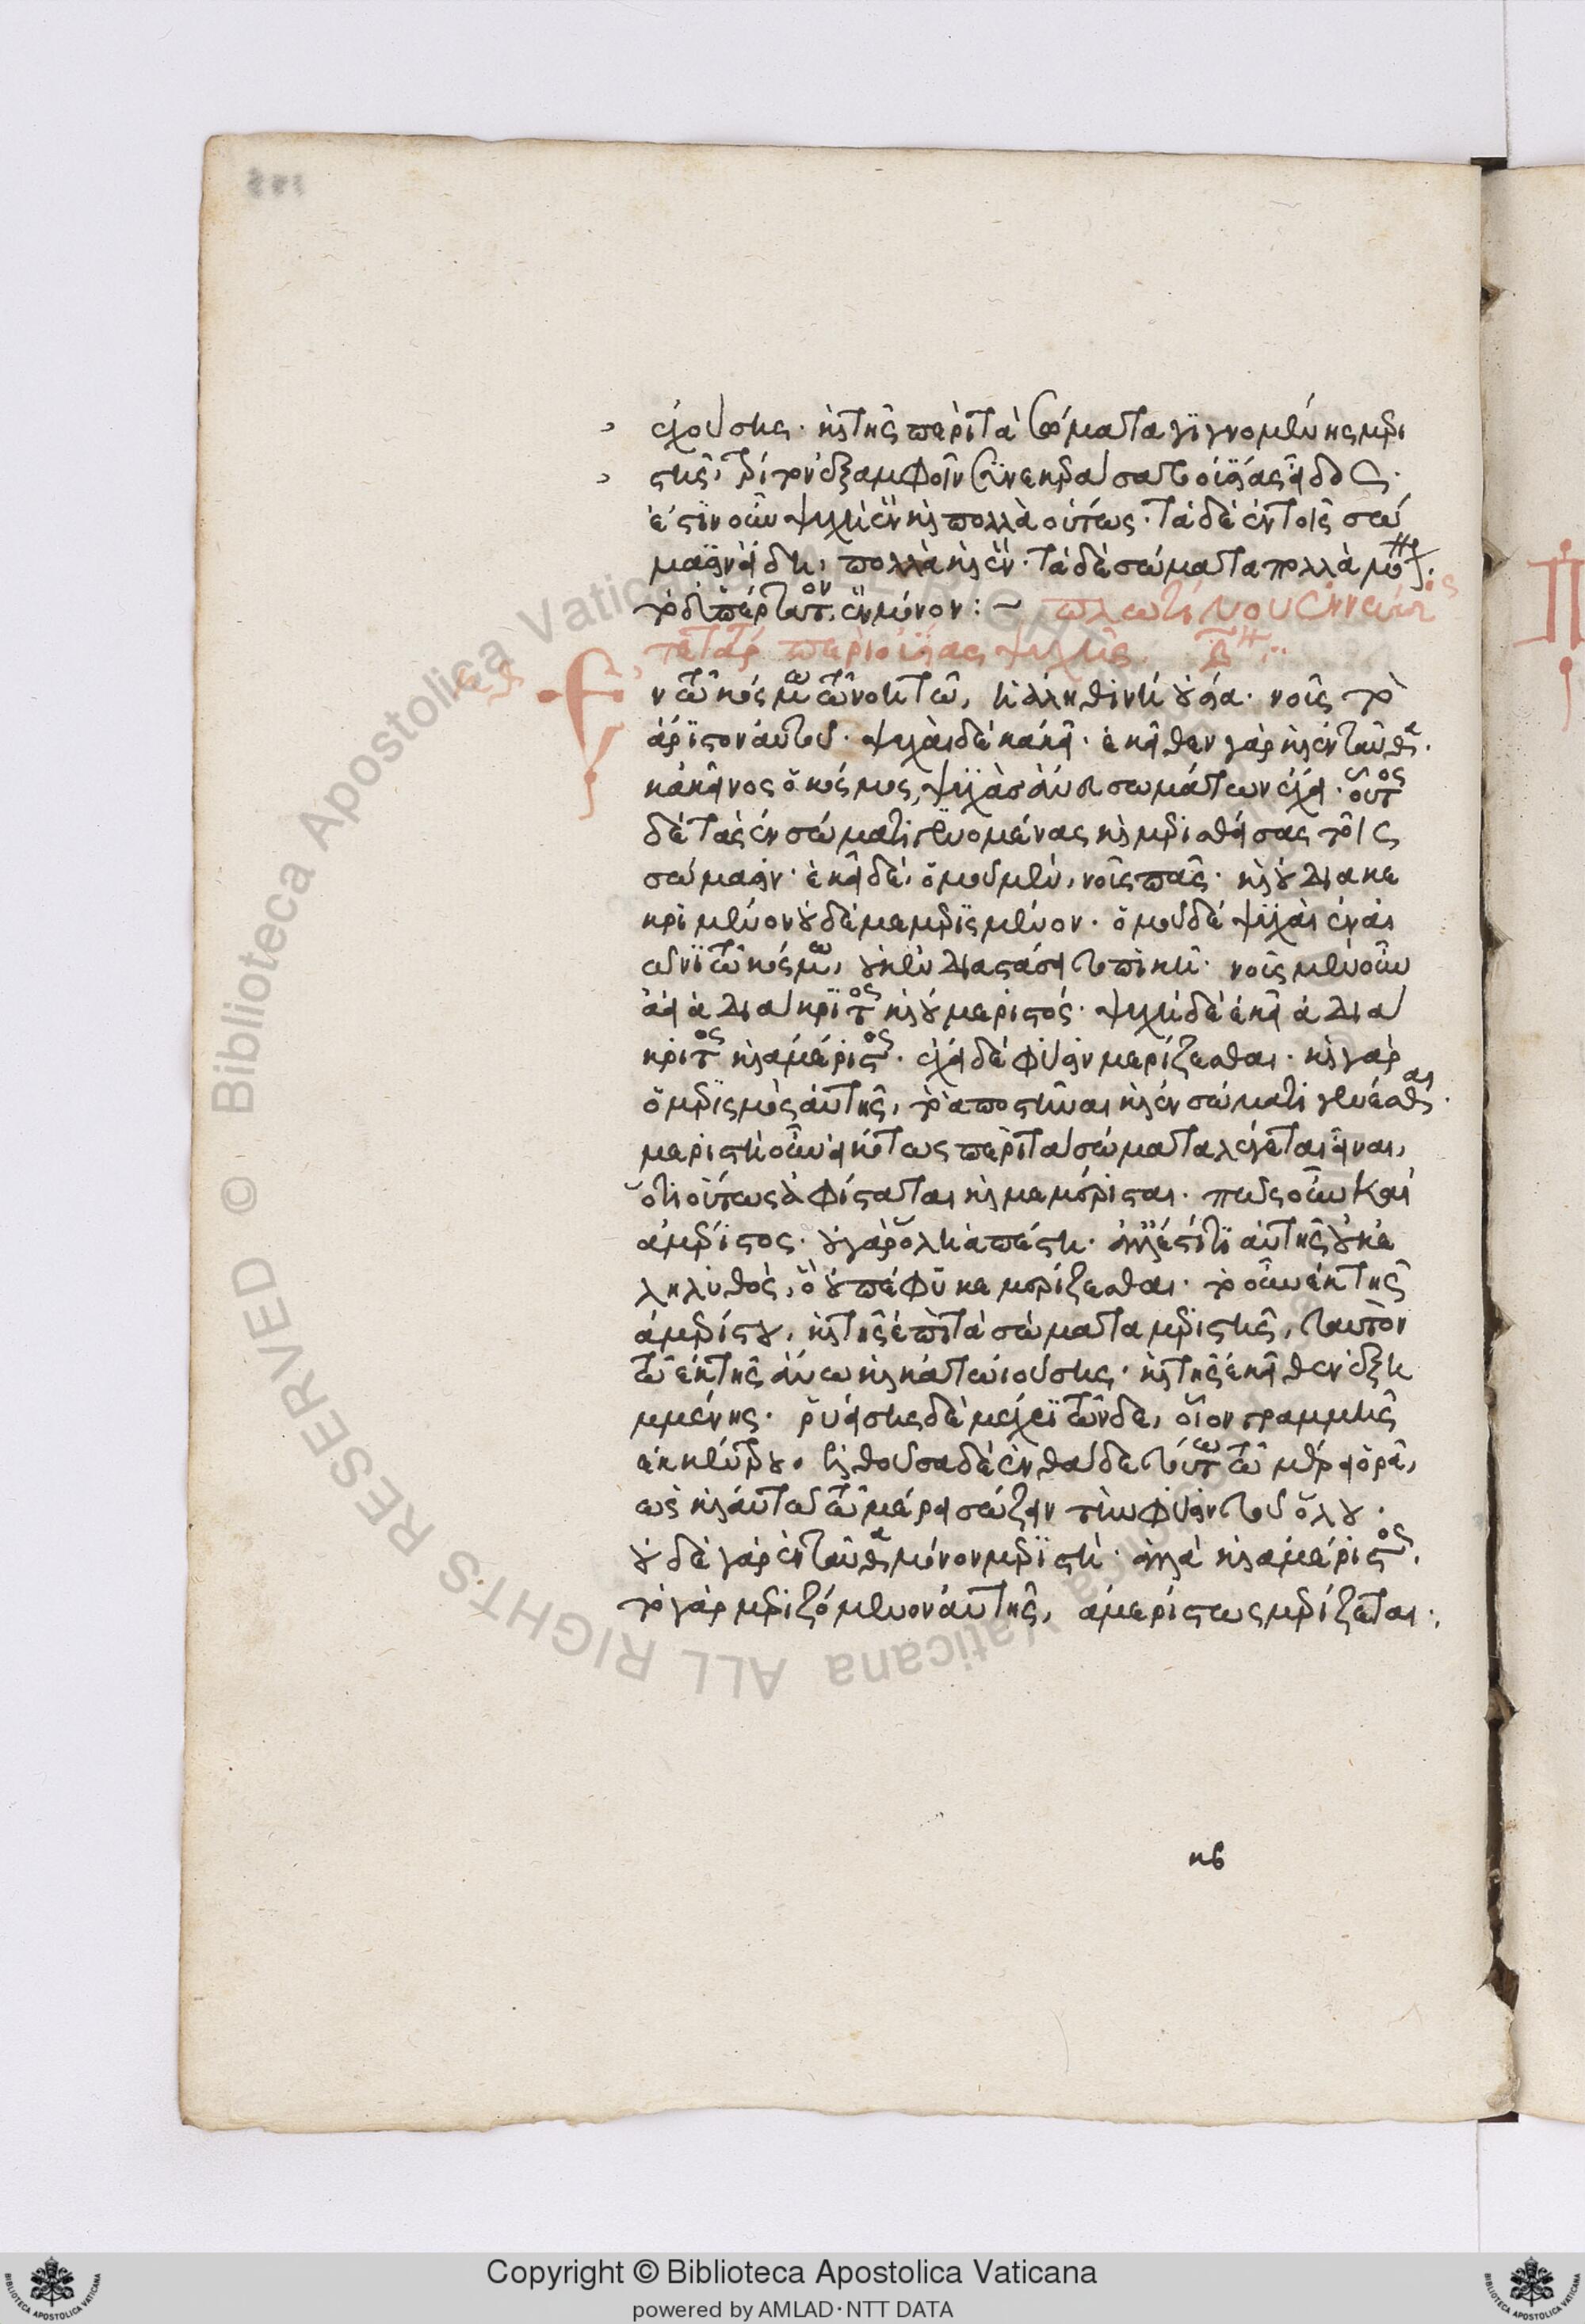 ἐχούσης· καὶ τῆς περὶ τὰ σώματα γιγνομένης μερι
στῆς, τρίτον ἐξ ἀμφοῖν συνεκεράσατο οὐσίας εἶδος·
ἔστιν οὖν ψυχὴ ἓν καὶ πολλὰ οὕτως· τὰ δὲ ἐν τοῖς σώ
μασιν εἴδη, πολλὰ καὶ ἕν· τὰ δὲ σώματα πολλὰ μόνον·
τὸ δ' ὑπέρτατον, ἓν μόνον :~ πλωτίνου ἐννεάδος
τετάρτης περὶ οὐσίας ψυχῆς. β
Ἐν τῷ κόσμῳ τῷ νοητῷ, ἡ ἀληθινὴ οὐσία· νοῦς τὸ
ἄριστον αὐτοῦ· ψυχαὶ δὲ κἀκεῖ· ἐκεῖθεν γὰρ καὶ ἐνταῦθα·
κἀκεῖνος ὁ κόσμος, ψυχὰς ἄνευ σωμάτων ἔχει· οὗτος
δὲ τὰς ἐν σώματι γενομένας καὶ μερισθείσας τοῖς
σώμασιν· ἐκεῖ δὲ, ὁμοῦ μὲν, νοῦς πᾶς· καὶ οὐ διακε
κριμένον οὐδὲ μεμερισμένον· ὁμοῦ δὲ ψυχαὶ ἐν αἰ
ῶνι τῷ κόσμῳ, οὐκ ἐν διαστάσει τοπικῇ· νοῦς μὲν οὖν
ἀεὶ ἀδιάκριτος καὶ οὐ μεριστός· ψυχὴ δὲ ἐκεῖ ἀδιά
κριτος καὶ ἀμέριστος· ἔχει δὲ φύσιν μερίζεσθαι· καὶ γὰρ
ὁ μερισμὸς αὐτῆς, τὸ ἀποστῆναι καὶ ἐν σώματι γενέσθαι·
μεριστὴ οὖν εἰκότως περὶ τὰ σώματα λέγεται εἶναι,
ὅτι οὕτως ἀφίσταται καὶ μεμέρισται· πῶς οὖν καὶ
ἀμέριστος· οὐ γὰρ ὅλη ἀπέστη· ἀλλ' ἔστι τι αὐτῆς οὐκ ἐ
ληλυθὸς, ὃ οὐ πέφυκε μερίζεσθαι· τὸ οὖν ἐκ τῆς
ἀμερίστου, καὶ τῆς ἐπὶ τὰ σώματα μεριστῆς, ταυτὸν
τῷ ἐκ τῆς ἄνω καὶ κάτω ἰούσης· καὶ τῆς ἐκεῖθεν ἐξη
μμένης· ῥυείσης δὲ μέχρι τῶνδε, οἷον γραμμῆς
ἐκ κέντρου· ἐλθοῦσα δὲ ἐνθάδε τούτῳ τῷ μέρει ὁρᾷ,
ᾧ καὶ αὐτῷ τῷ μέρει σώζειν τὴν φύσιν τοῦ ὅλου·
οὐδὲ γὰρ ἐνταῦθα μόνον μεριστὴ· ἀλλὰ καὶ ἀμέριστος,
τὸ γὰρ μεριζόμενον αὐτῆς, ἀμερίστως μερίζεται·
κβ
Copyright © Biblioteca Apostolica Vaticana
powered by AMLAD·NTT DATA